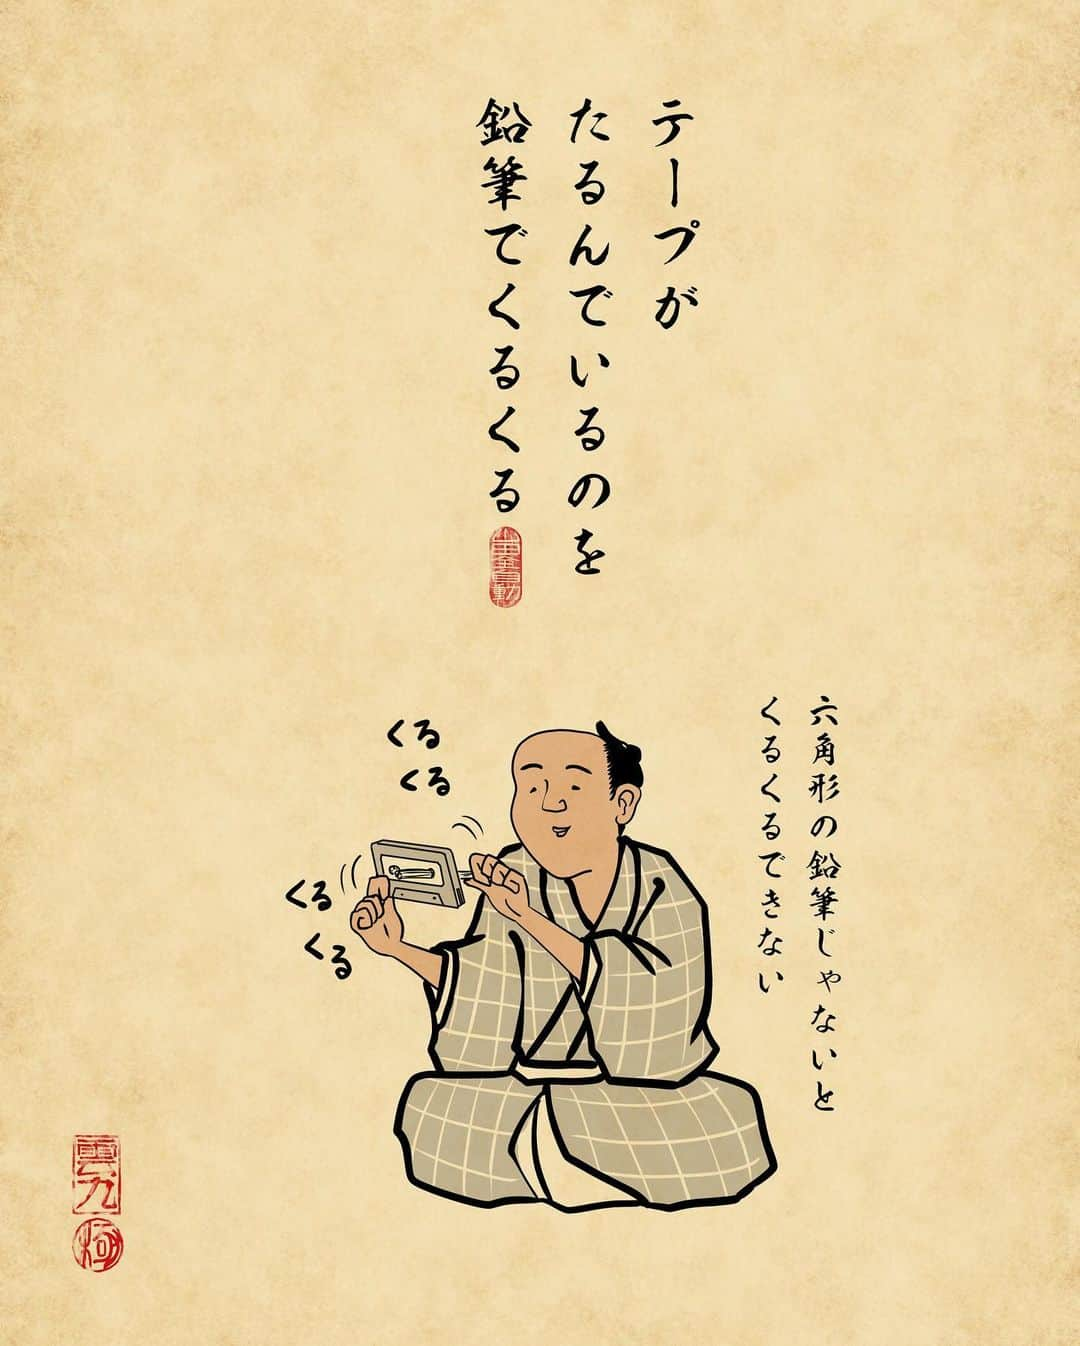 テープが
たるんでいるのを
鉛筆でくるくる
六角形の鉛筆じゃないと
くるくるできない
くる
くる
くる
くる